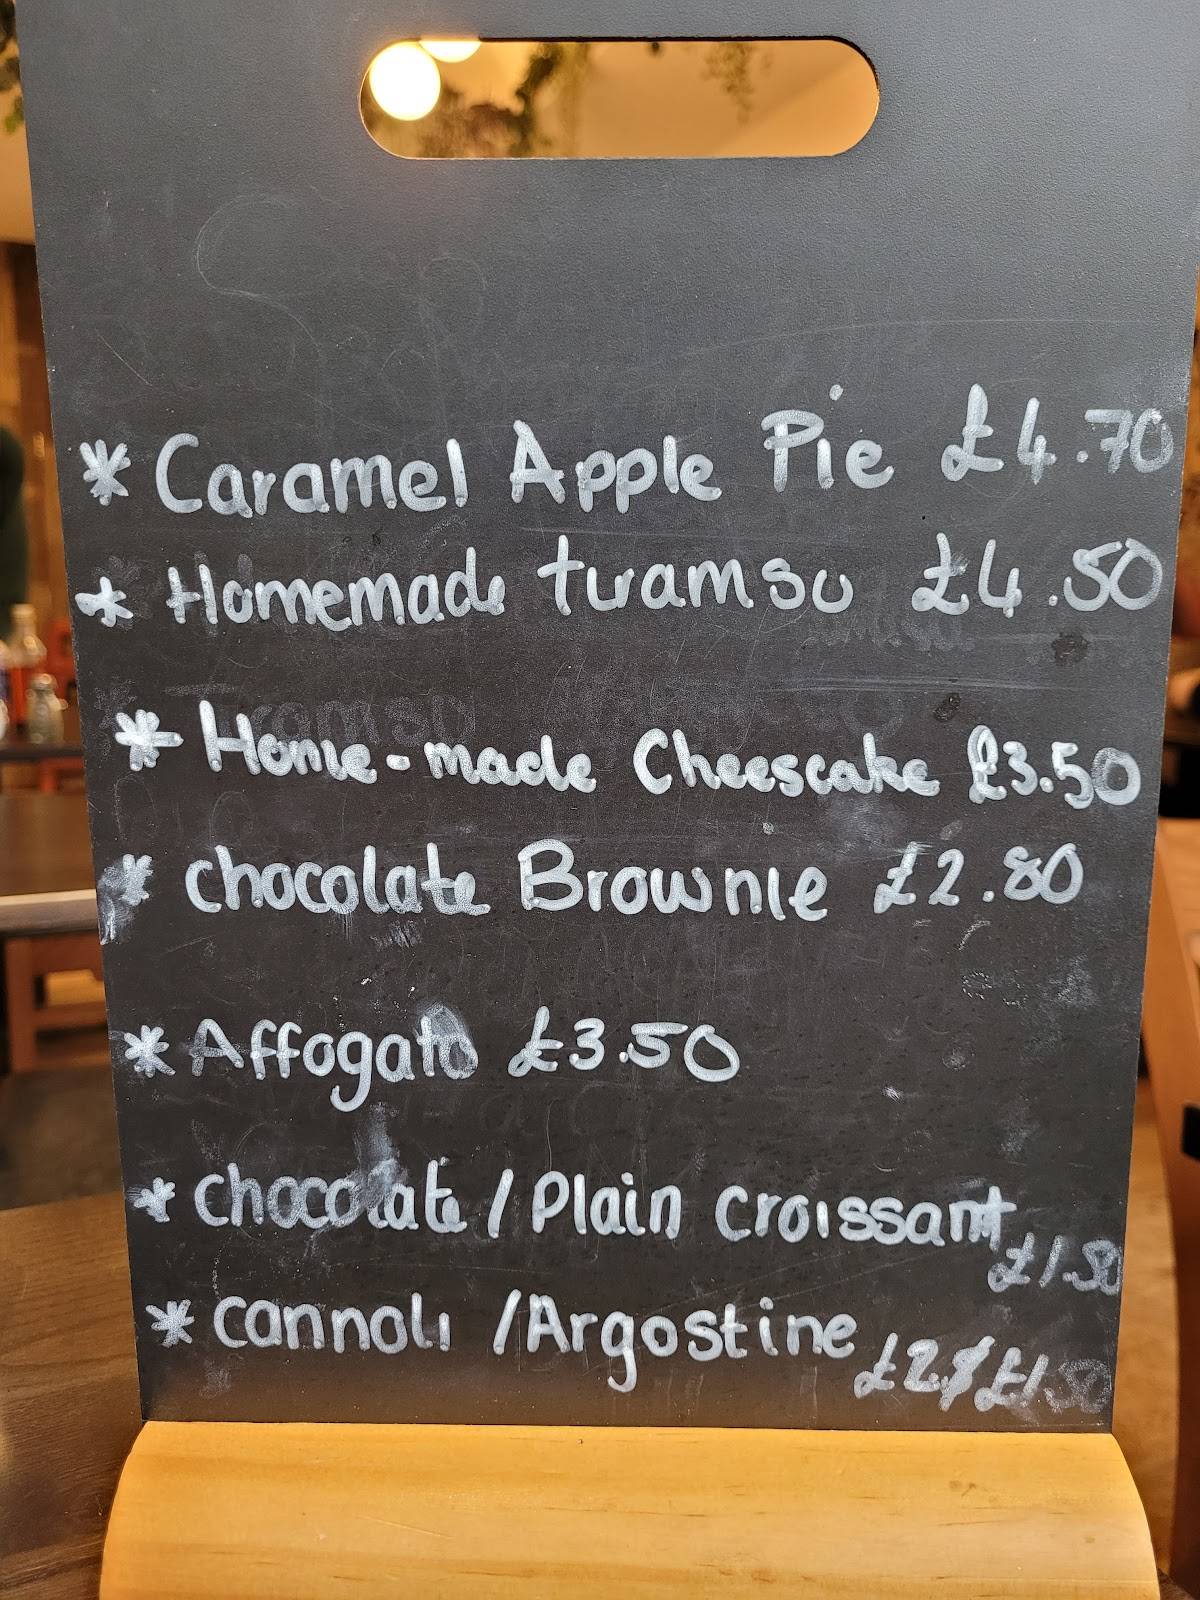 * Caramel Apple Pie £4.70
* Homemade tiramsu £4.50
* Home-made Cheesecake £3.50
* chocolate Brownie £2.80
* Affogato £3.50
* chocolate / Plain croissant
£1.50
* cannoli / Argostine
£2 / £1.50